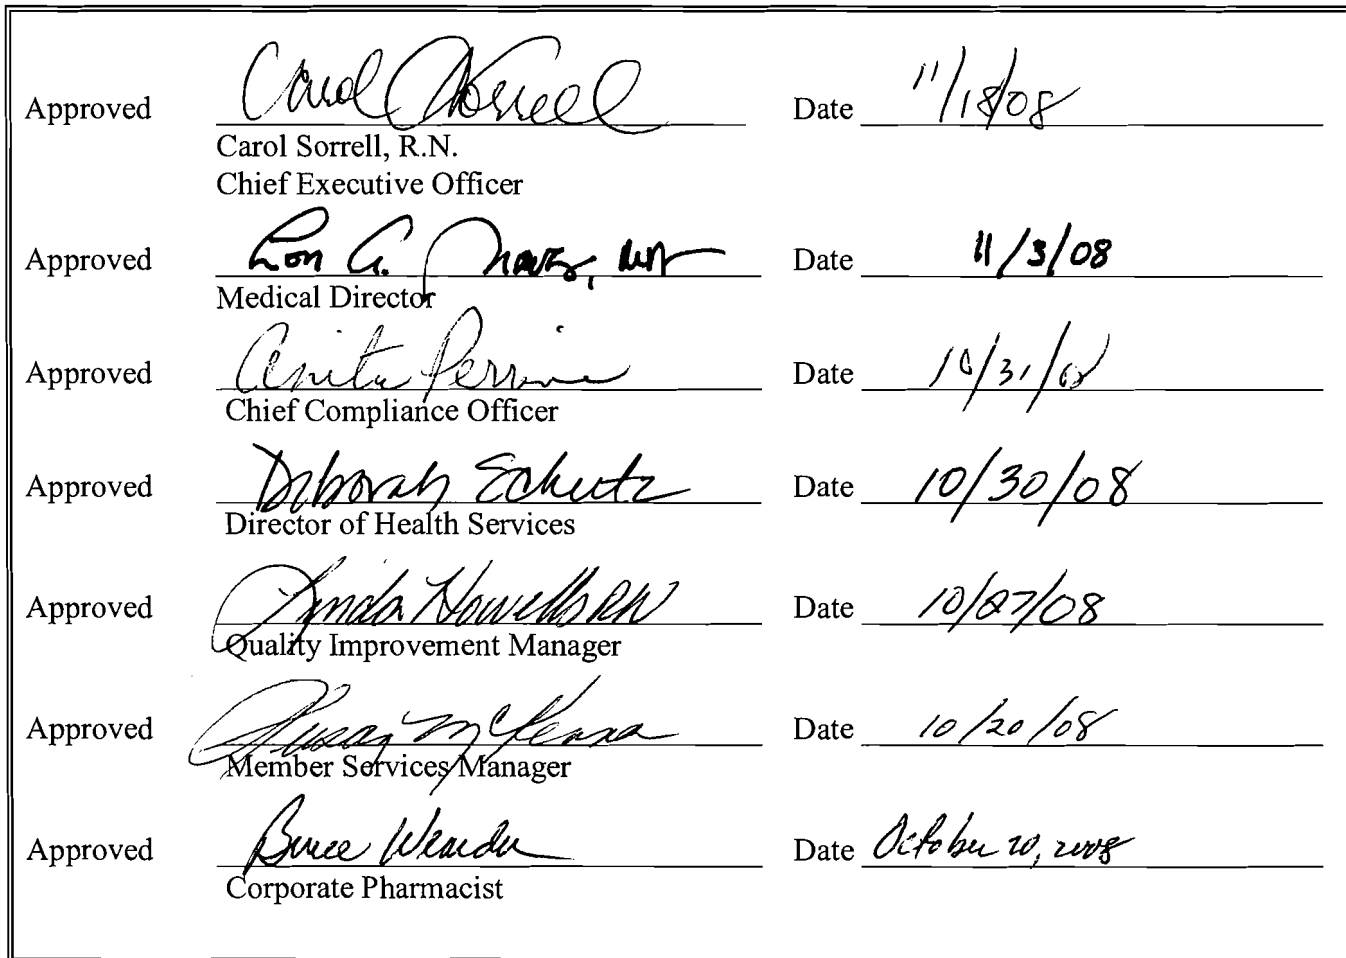 Approved Carol Sorrell Date 11/18/08
Carol Sorrell, R.N.
Chief Executive Officer
Approved Lon A. Date 11/3/08
Medical Director
Approved Anita Perrine Date 10/31/08
Chief Compliance Officer
Approved Deborah Schutz Date 10/30/08
Director of Health Services
Approved Lynda Howells RN Date 10/27/08
Quality Improvement Manager
Approved Susan McKenna Date 10/20/08
Member Services Manager
Approved Bruce Date October 20, 2008
Corporate Pharmacist